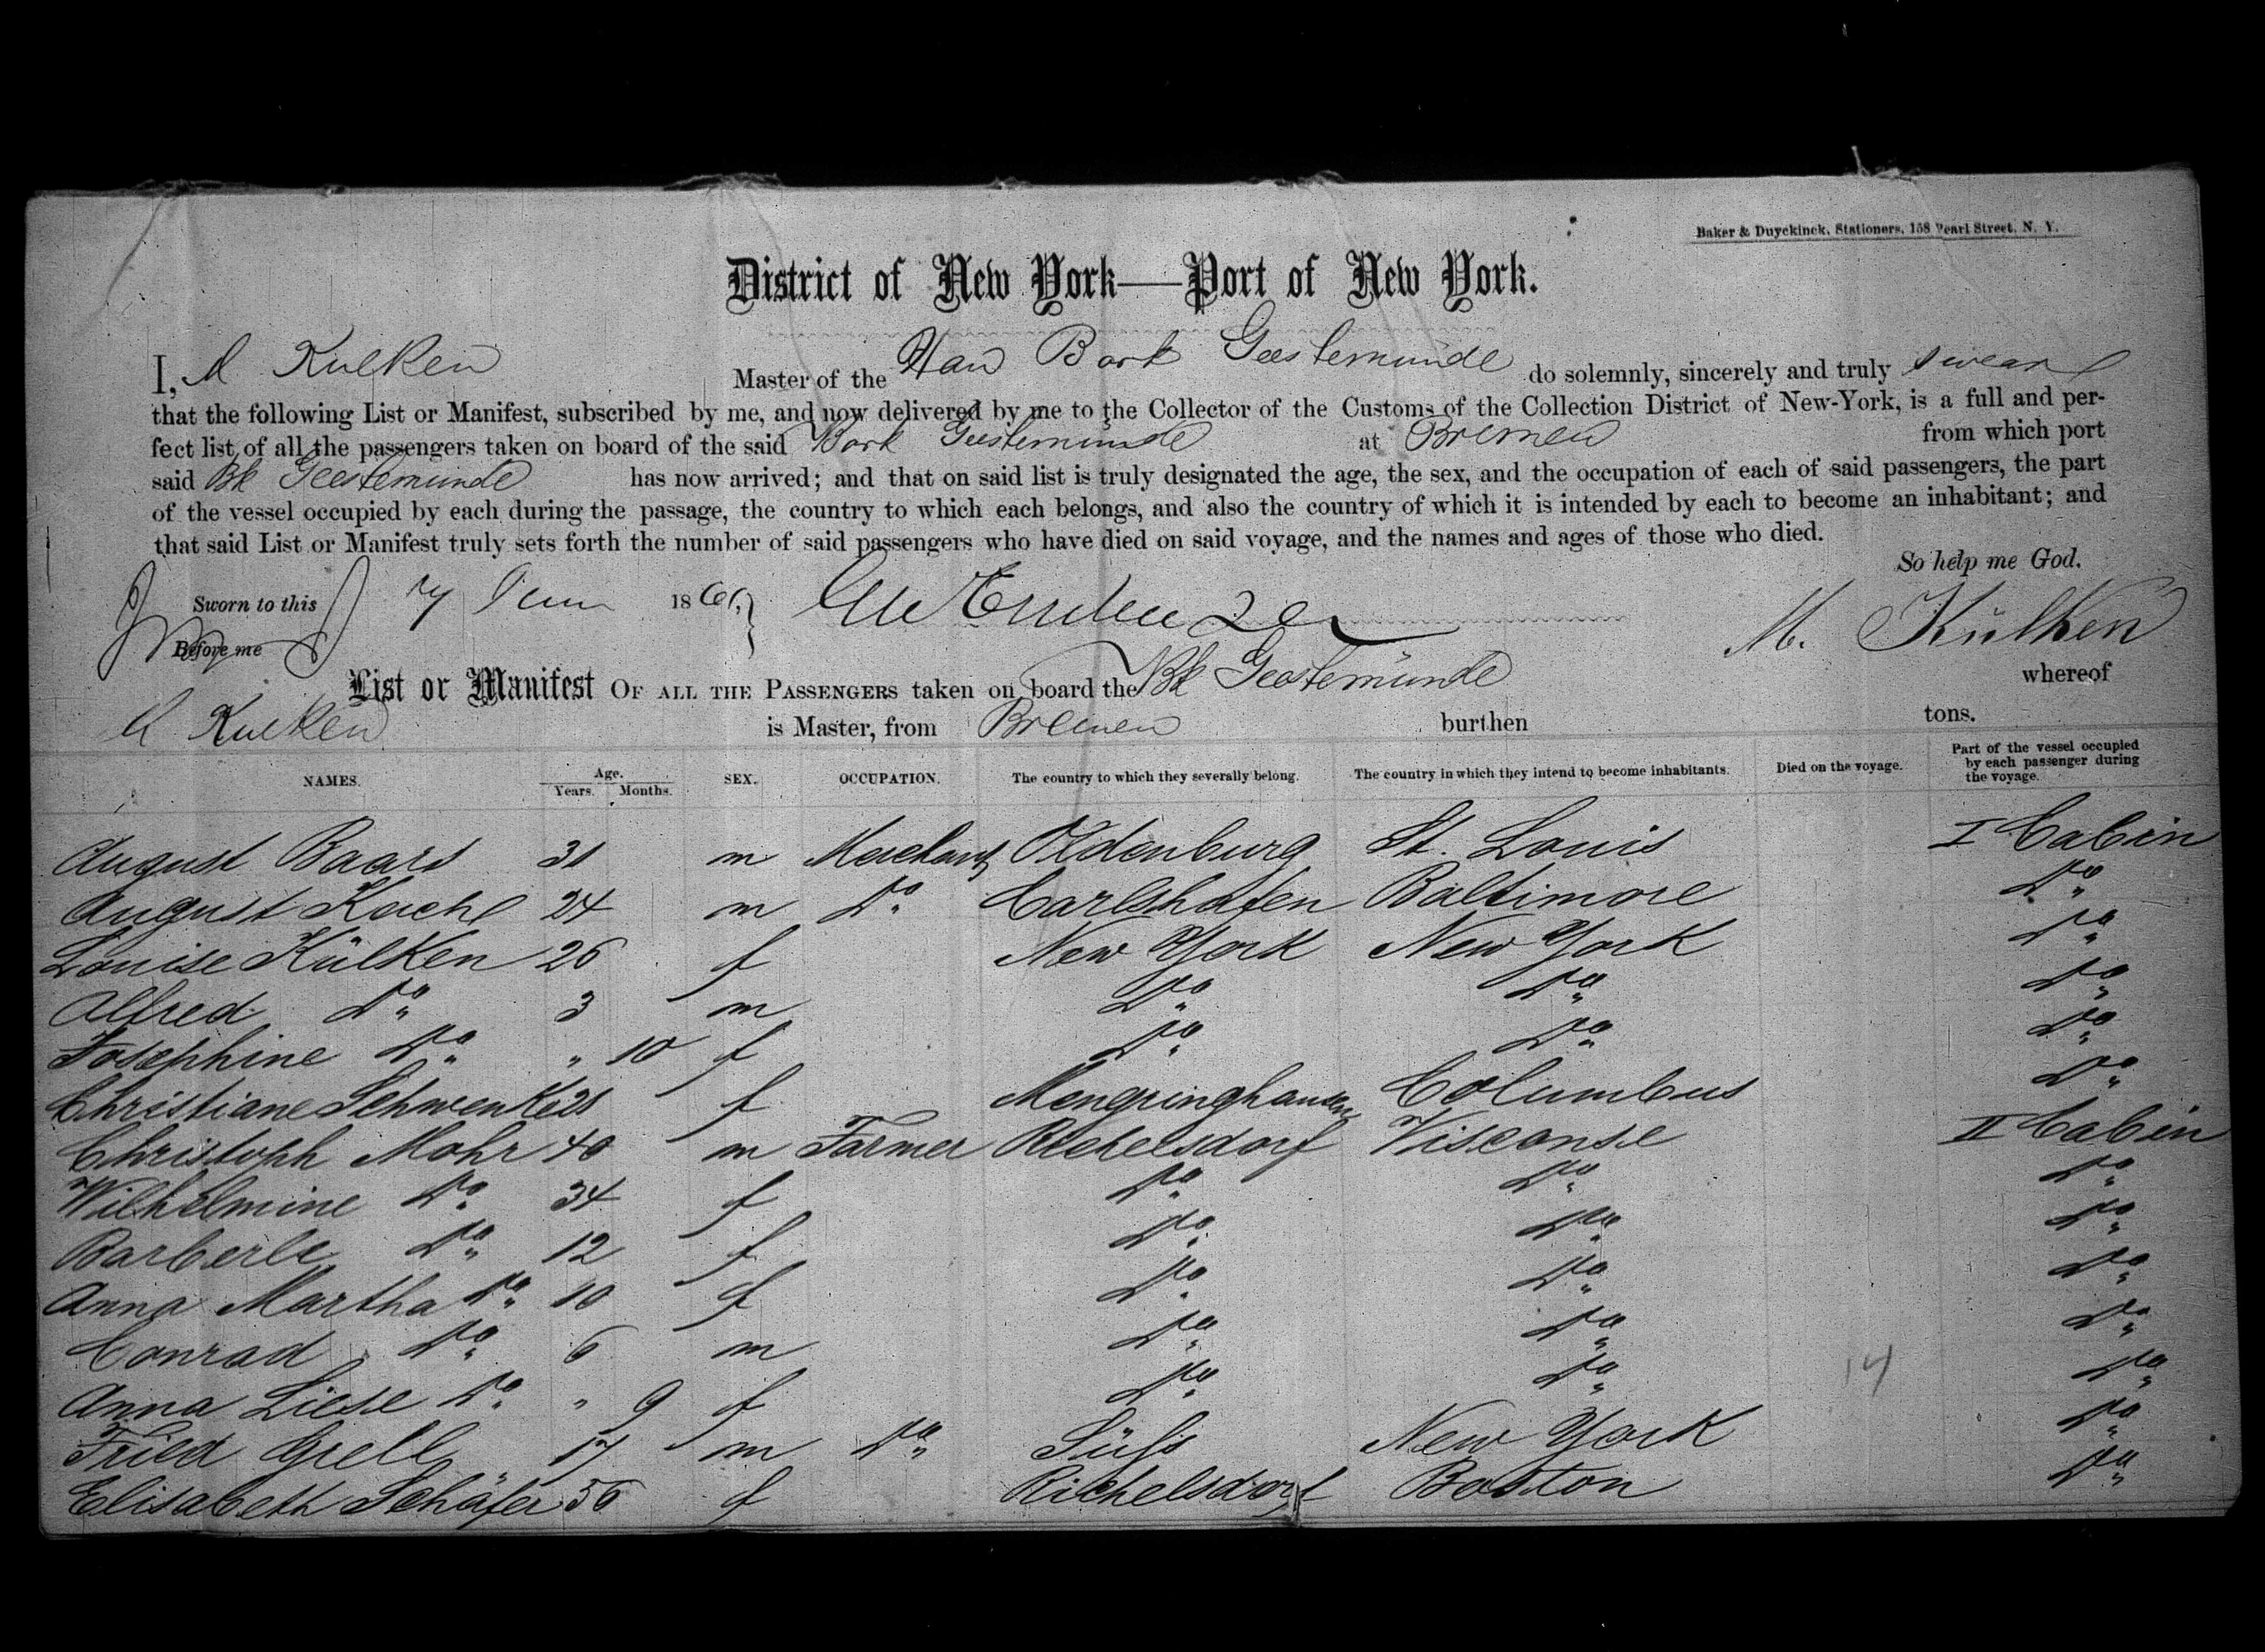 Baker & Duyckinck, Stationers, 158 Pearl Street, N. Y.
District of New York—Port of New York.
I, M Kulken Master of the Han Bark Geestemunde do solemnly, sincerely and truly swear
that the following List or Manifest, subscribed by me, and now delivered by me to the Collector of the Customs of the Collection District of New-York, is a full and per-
fect list of all the passengers taken on board of the said Bark Geestemunde at Bremen from which port
said Bk Geestemunde has now arrived; and that on said list is truly designated the age, the sex, and the occupation of each of said passengers, the part
of the vessel occupied by each during the passage, the country to which each belongs, and also the country of which it is intended by each to become an inhabitant; and
that said List or Manifest truly sets forth the number of said passengers who have died on said voyage, and the names and ages of those who died.
So help me God.
Sworn to this 7 June 186
Before me
M. Külken
List or Manifest OF ALL THE PASSENGERS taken on board the Bk Geestemünde whereof
Kulken is Master, from Bremen burthen tons.
NAMES. Age. Years. Months. SEX. OCCUPATION. The country to which they severally belong. The country in which they intend to become inhabitants. Died on the voyage. Part of the vessel occupied by each passenger during the voyage.
August Baars 31 m Merchant Oldenburg St. Louis I Cabin
August Koch 24 m Do Carlshafen Baltimore Do
Louise Külken 26 f New York New York Do
Alfred Do 3 m Do Do Do
Josephine Do " 10 f Do Do Do
Christiane Schwenke 21 f Mengringhausen Columbus Do
Christoph Mohr 40 m Farmer Richelsdorf Visconse II Cabin
Wilhelmine Do 34 f Do Do Do
Barberle Do 12 f Do Do Do
Anna Martha Do 10 f Do Do Do
Conrad Do 6 m Do Do Do
Anna Liese Do " 9 f Do Do Do
Fried Grell 17 m Do Süfs New York Do
Elisabeth Schäfer 56 f Richelsdorf Boston Do
14